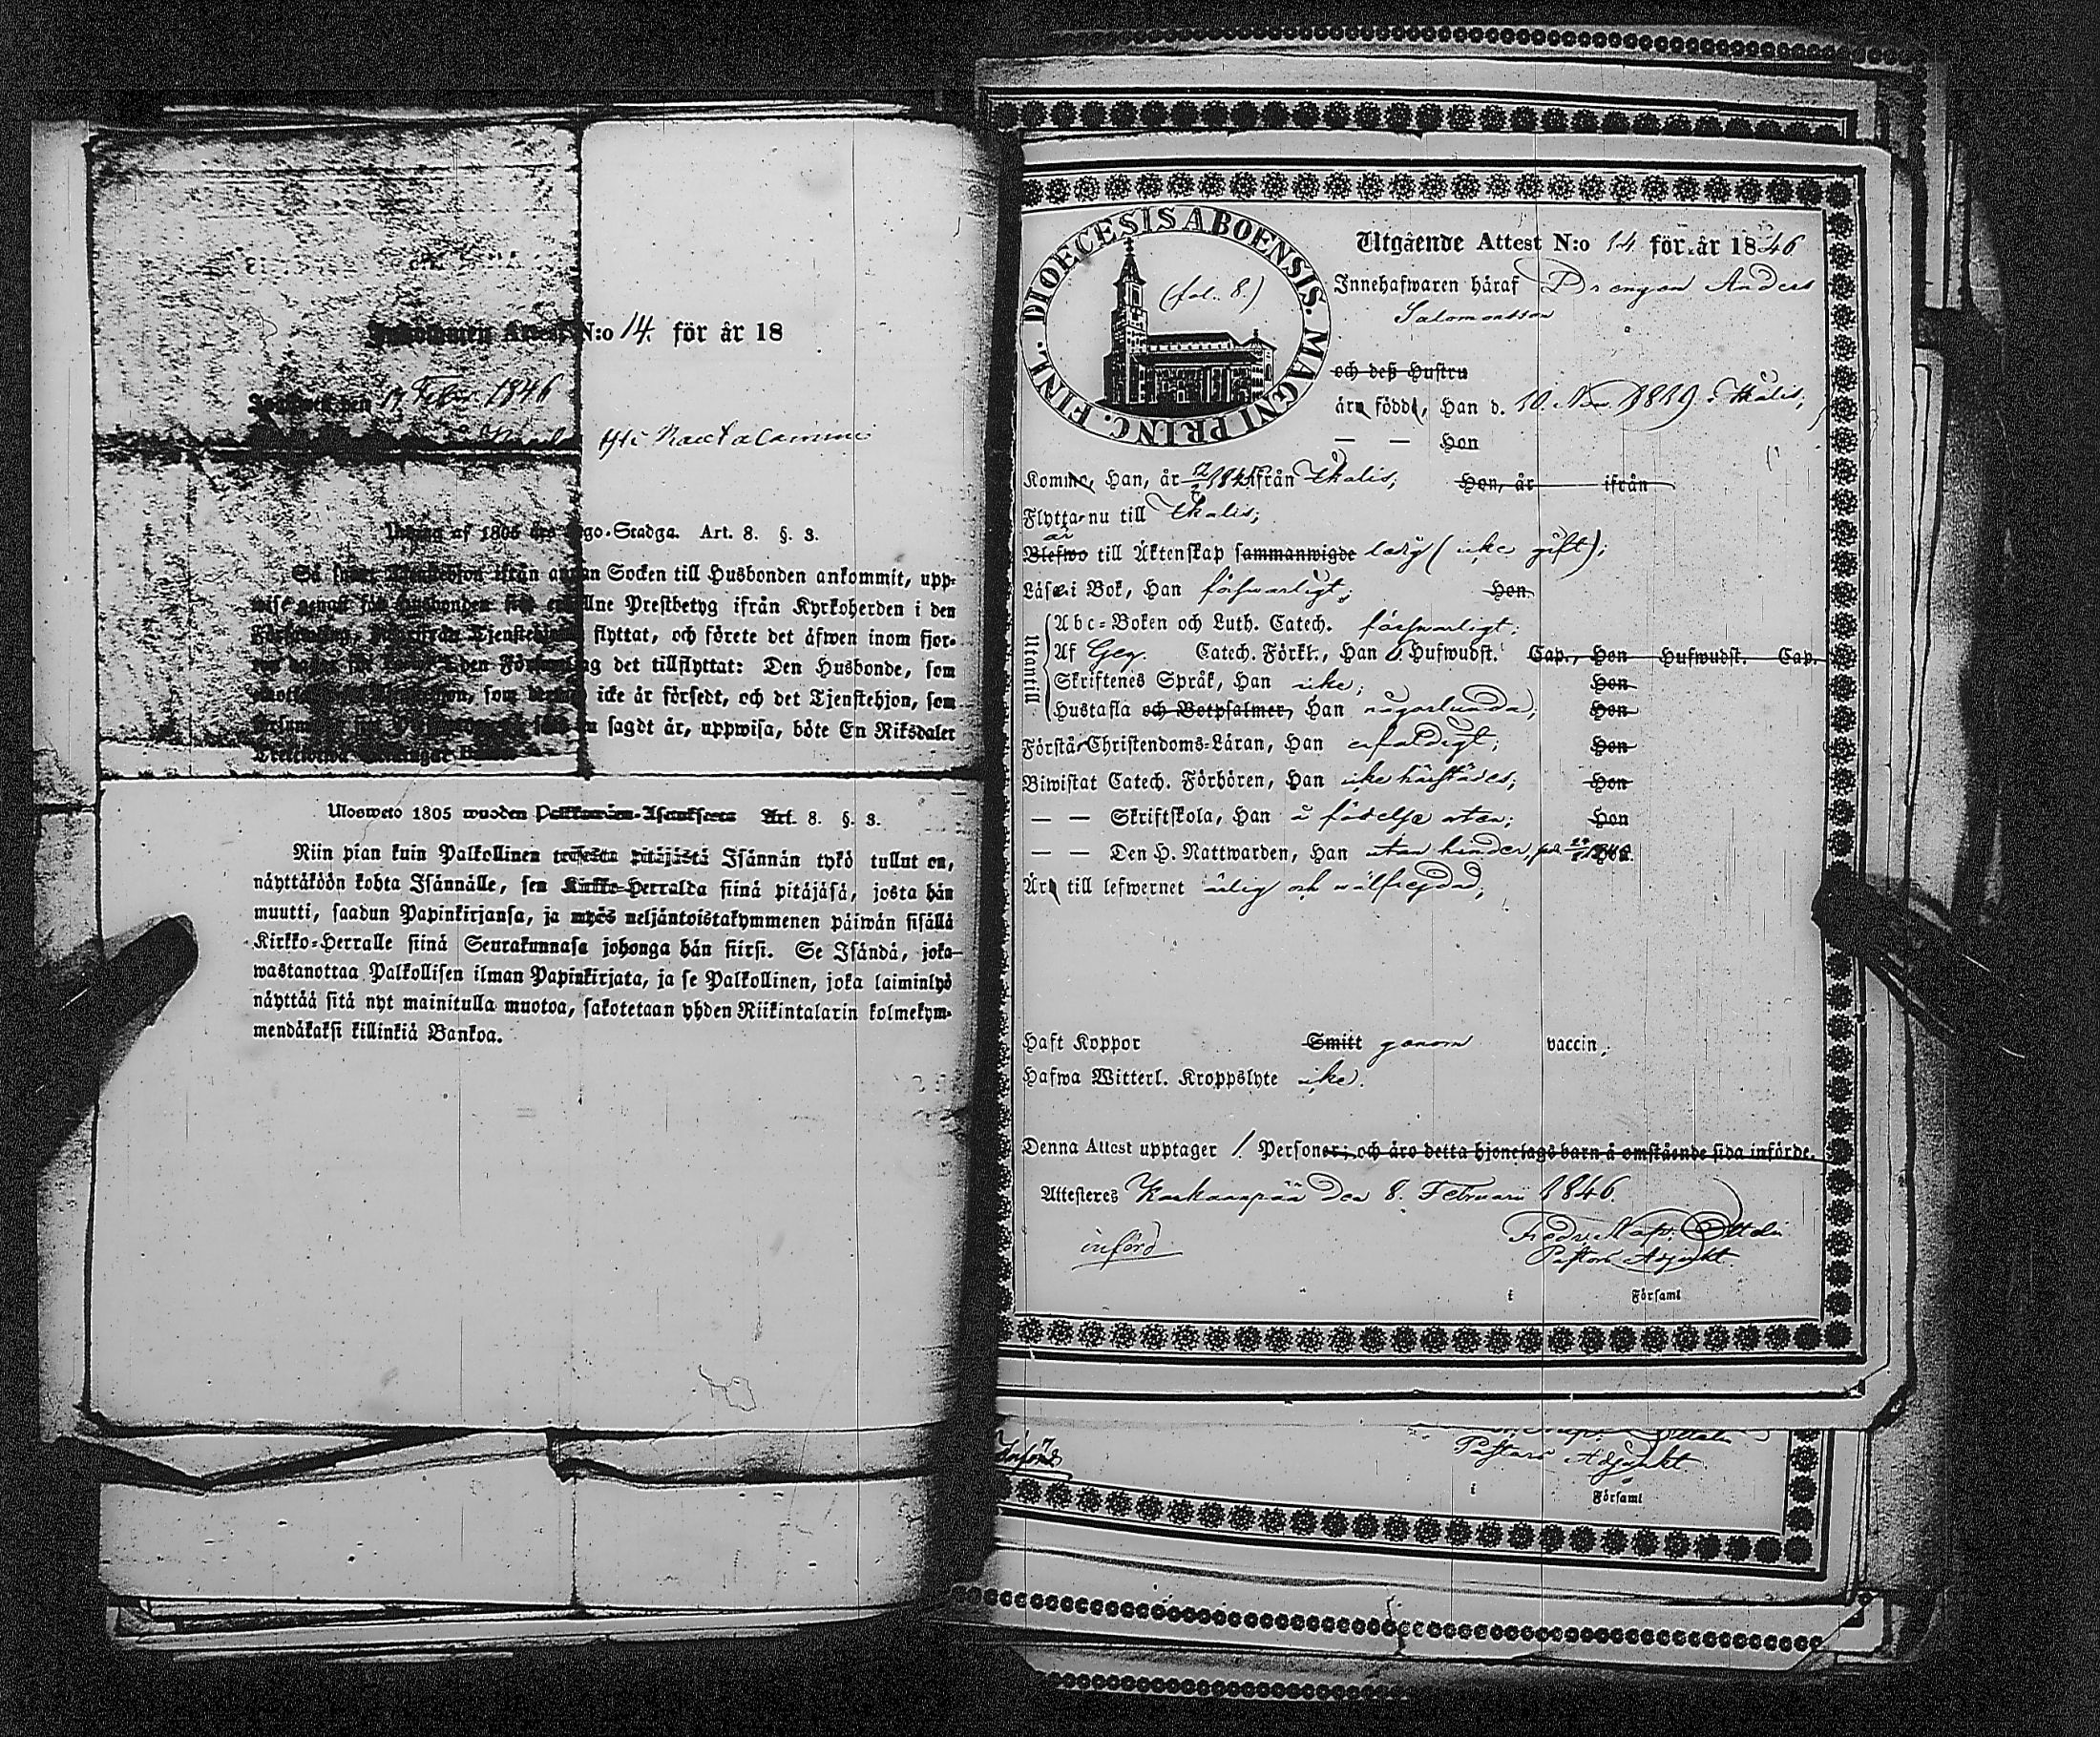 Inkommen Attest N:o 14. för år 18
17 Febr. 1846
Utdrag af 1805 års Lego-Stadga. Art. 8. §. 3.
Så snart Tjenstehjon ifrån annan Socken till Husbonden ankommit, upp-
wise genast för Husbonden sitt erhållne Prestbetyg ifrån Kyrkoherden i den
Församling, hwarifrån Tjenstehjonet flyttat, och förete det äfwen inom fjor-
ton dagar för Kyrkoherden i den Församling det tillflyttat: Den Husbonde, som
emottager Tjenstehjon, som dermed icke är försedt, och det Tjenstehjon, som
försummar sitt Prestbetyg, så som nu sagdt är, uppwisa, böte En Riksdaler
Trettiotwå Skillingar Banco.
Ulosweto 1805 wuoden Palkkawäen-Asetuksesta Art. 8. §. 3.
Niin pian kuin Palkollinen toisesta pitäjästä Isännän tykö tullut on,
näyttäköön kohta Isännälle, sen Kirkko-Herralda siinä pitäjäsä, josta hän
muutti, saadun Papinkirjansa, ja myös neljäntoistakymmenen päiwän sisällä
Kirkko-Herralle siinä Seurakunnasa johonga hän siirsi. Se Isändä, joka
wastanottaa Palkollisen ilman Papinkirjata, ja se Palkollinen, joka laiminlyö
näyttää sitä nyt mainitulla muotoa, sakotetaan yhden Riikintalarin kolmekym-
mendäkaksi killinkiä Bankoa.
FINL. DIOECESIS ABOENSIS. MAGNI PRINC.
(fol. 8.)
Utgående Attest N:o 14 för år 1846
Innehafwaren häraf Drengen Anders
Salomonsson
och deß Hustru
äro födde, Han d. 10. Nov. 1819 i Ikalis;
— — Hon
Komne, Han, år 1845 ifrån Ikalis; Hon, år ifrån
Flytta nu till Ikalis;
är
Blefwo till Äktenskap sammanwigde ledig (icke gift);
Läsa i Bok, Han förswarligt; Hon
Utantill
Abc-Boken och Luth. Catech. förswarligt;
Af Geg. Catech. Förkl., Han 5. Hufwudst. Cap., Hon Hufwudst. Cap.
Skriftenes Språk, Han icke; Hon
Hustafla och Botpsalmer, Han någorlunda; Hon
Förstår Christendoms-Läran, Han enfaldigt; Hon
Biwistat Catech. Förhören, Han icke härstädes; Hon
— — Skriftskola, Han i födelse orten; Hon
— — Den H. Nattwarden, Han utan hinder, Hon
Äro till lefwernet ärlig och wälfrejdad;
Haft Koppor Smitt genom vaccin;
Hafwa Witterl. Kroppslyte icke.
Denna Attest upptager 1. Personer; och äro detta hjonelags barn å omstående sida införde.
Attesteres Kankaanpää den 8. Februari 1846.
Fredr. Nap. Ottelin
Pastors Adjunkt.
införd
i Församl
Pastors Adjunkt
Införd
i Församl